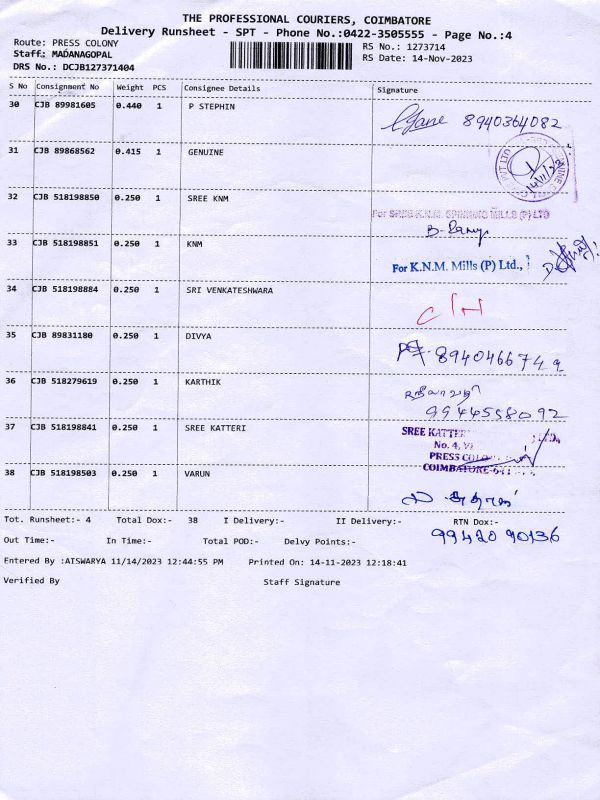 THE PROFESSIONAL COURIERS, COIMBATORE
Delivery Runsheet - SPT - Phone No.:0422-3505555 - Page No.:4
Route: PRESS COLONY
RS No.: 1273714
Staff: MADANAGOPAL
RS Date: 14-Nov-2023
DRS No.: DCJB127371404
S No Consignment No Weight PCS Consignee Details Signature
30 CJB 89981605 0.440 1 P STEPHIN
8940364082
31 CJB 89868562 0.415 1 GENUINE
14/11/23
32 CJB 518198850 0.250 1 SREE KNM
For SREE K.N.M. SPINNING MILLS (P) LTD
33 CJB 518198851 0.250 1 KNM
For K.N.M. Mills (P) Ltd.,
34 CJB 518198884 0.250 1 SRI VENKATESHWARA
35 CJB 89831180 0.250 1 DIVYA
8940466742
36 CJB 518279619 0.250 1 KARTHIK
9944558092
37 CJB 518198841 0.250 1 SREE KATTERI
SREE KATTER
No. 4,
PRESS COLO
COIMBATORE-641
38 CJB 518198503 0.250 1 VARUN
Tot. Runsheet:- 4 Total Dox:- 38 I Delivery:- II Delivery:- RTN Dox:-
9942090136
Out Time:- In Time:- Total POD:- Delvy Points:-
Entered By :AISWARYA 11/14/2023 12:44:55 PM Printed On: 14-11-2023 12:18:41
Verified By Staff Signature